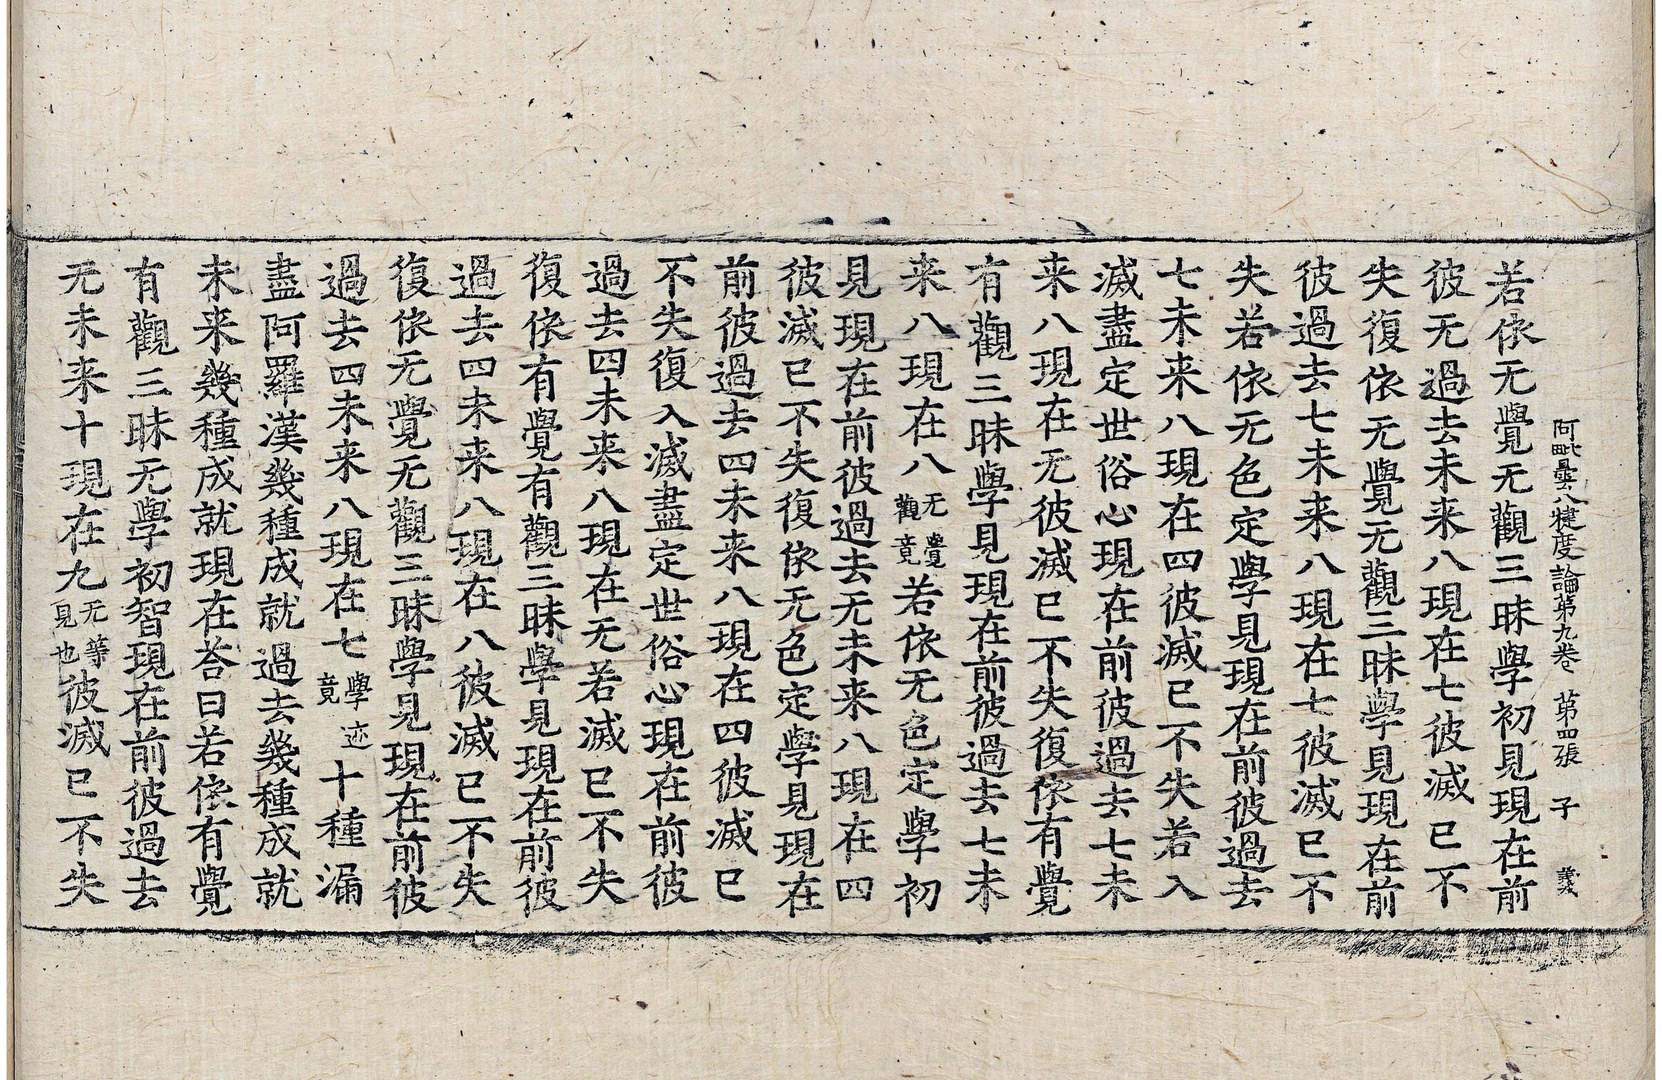 阿毗曇八揵度論第九卷　第四張　子
若依无覺无觀三昧學初見現在前
彼无過去未来八現在七彼滅已不
失復依无覺无觀三昧學見現在前
彼過去七未来八現在七彼滅已不
失若依无色定學見現在前彼過去
七未来八現在四彼滅已不失若入
滅盡定世俗心現在前彼過去七未
来八現在无彼滅已不失復依有覺
有觀三昧學見現在前彼過去七未
来八現在八无覺觀竟若依无色定學初
見現在前彼過去无未来八現在四
彼滅已不失復依无色定學見現在
前彼過去四未来八現在四彼滅已
不失復入滅盡定世俗心現在前彼
過去四未来八現在无若滅已不失
復依有覺有觀三昧學見現在前彼
過去四未来八現在八彼滅已不失
復依无覺无觀三昧學見現在前彼
過去四未来八現在七學迹竟十種漏
盡阿羅漢幾種成就過去幾種成就
未来幾種成就現在荅曰若依有覺
有觀三昧无學初智現在前彼過去
无未来十現在九无等見也彼滅已不失